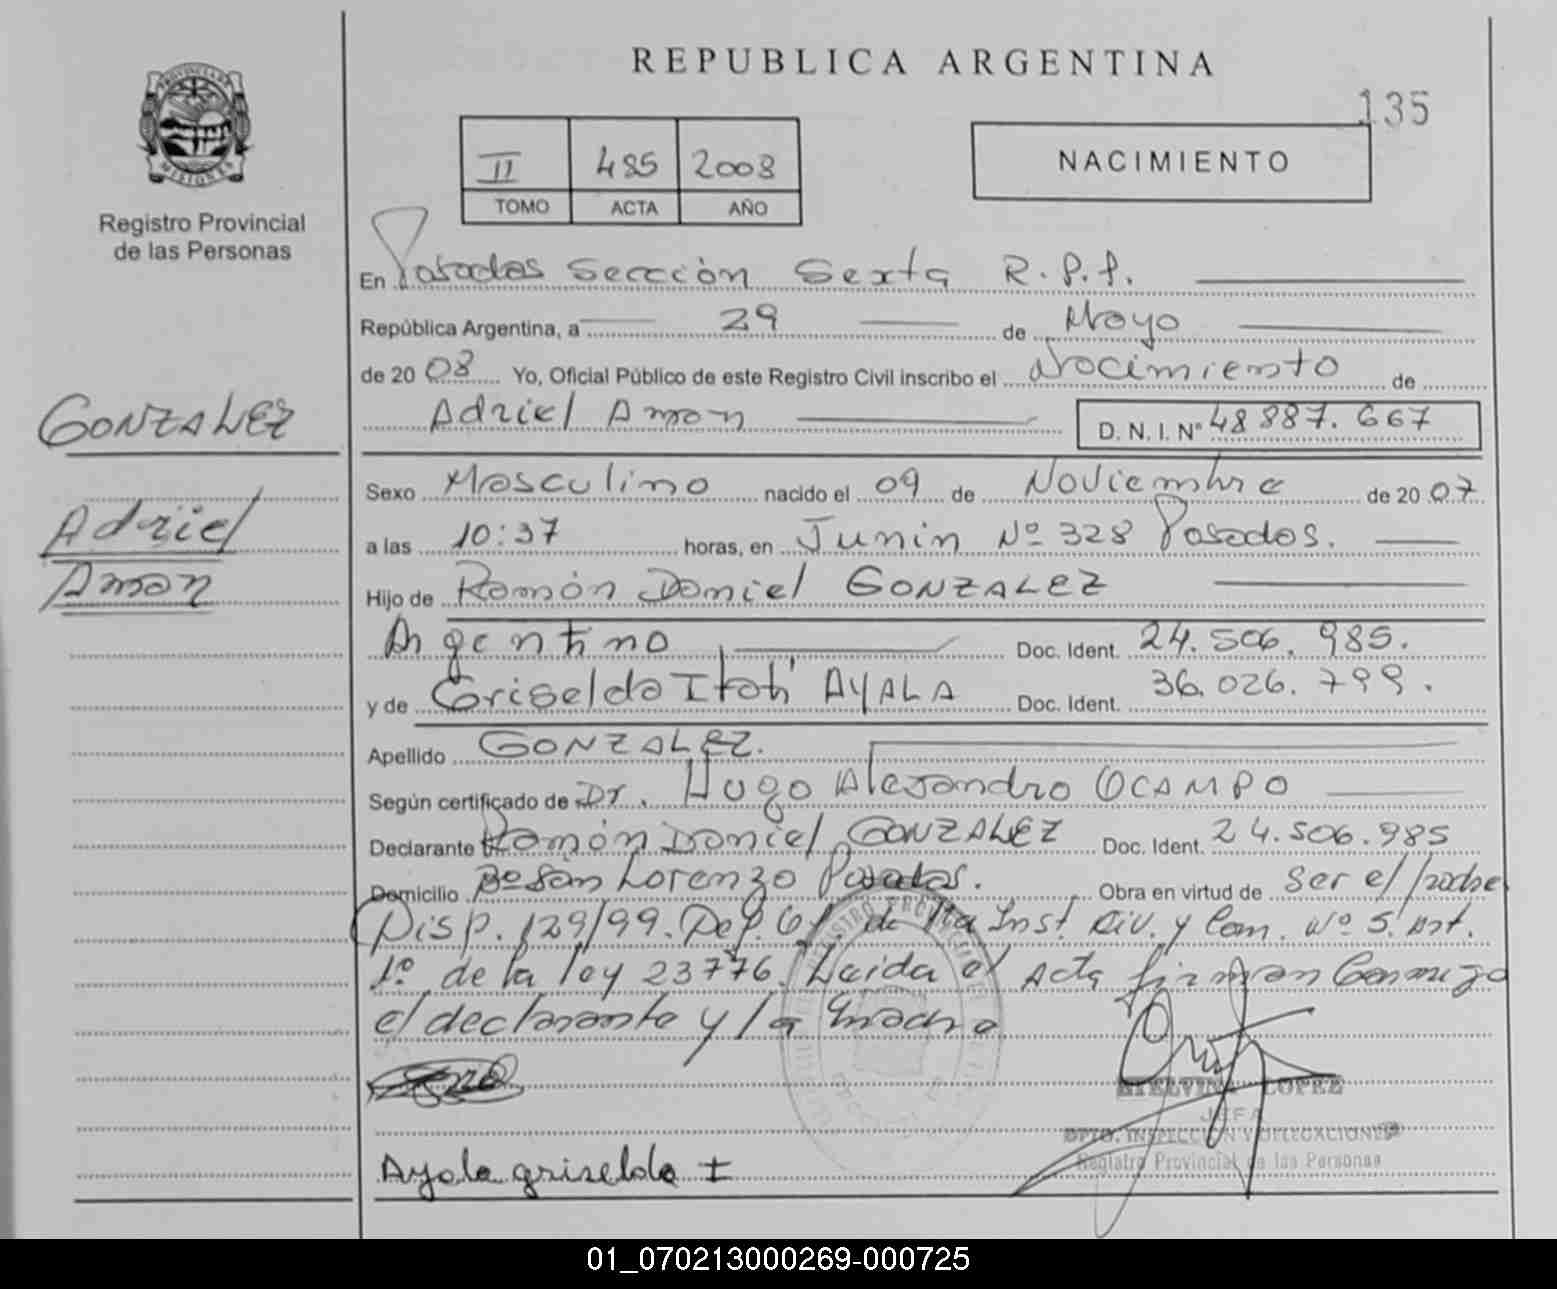 REPUBLICA ARGENTINA
135
PROVINCIA DE
MISIONES
Registro Provincial
de las Personas
II 485 2008
TOMO ACTA AÑO
NACIMIENTO
En Posadas Sección Sexta R.P.P.
República Argentina, a 29 de Mayo
de 2008 Yo, Oficial Público de este Registro Civil inscribo el Nacimiento de
Adriel Amon D. N. I. Nº 48 887. 667
GONZALEZ
Adriel
Amon
Sexo Masculino nacido el 09 de Noviembre de 2007
a las 10:37 horas, en Junin Nº 328 Posadas.
Hijo de Ramón Daniel GONZALEZ
Argentino Doc. Ident. 24. 506. 985.
y de Griselda Itatí AYALA Doc. Ident. 36. 026. 799.
Apellido GONZALEZ.
Según certificado de Dr. Hugo Alejandro OCAMPO
Declarante Ramón Daniel GONZALEZ Doc. Ident. 24.506.985
Domicilio Bº San Lorenzo Posadas. Obra en virtud de ser el padre
Disp. 129/99. Def. Of. de 1ra Inst. Civ. y Com. Nº 5. Art.
1º de la ley 23776. Leida el Acta firman Conmigo
el declarante y la madre
ETELVINA LOPEZ
JEFA
DPTO. INSPECCION Y DELEGACIONES
Registro Provincial de las Personas
Ayala griselda I
01_070213000269-000725